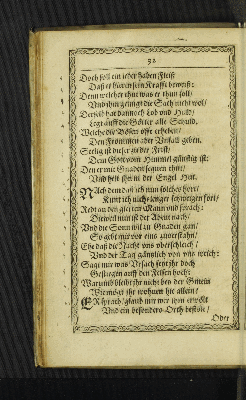 32
Doch soll ein jeder haben Fleiß
Daß er hierin sein Krafft beweiß:
Denn welcher thut was er thun soll/
Und ihm gelingt die Sach nicht wol/
Derselb hat dannoch Lob und Huld/
Legt auff die Götter alle Schuld,
Welche die Bösen offt erheben/
Dem Frommen aber Unfall geben.
Seelig ist dieser zu der Frist/
Dem Gott vom Himmel günstig ist:
Den er mit Gnaden segnen thut/
Und helt ihn in der Engel Hut.
NAch dem daß ich nun solches hört/
Kunt ich nicht länger schweigen fort/
Redt an den alten Mann und sprach:
Dieweil nun ist der Abent nach/
Und die Sonn wil zu Gnaden gan/
So geht mit vor eins
Ehe daß die Nacht uns überschleich/
Und der Tag gäntzlich von uns weich:
Sagt mir was Ursach seyt ihr doch
Gestiegen auff den Felsen hoch:
Warumb bleibt ihr nicht bey der Gmein
Wie möget ihr wohnen hie allein/
ER sprach/ glaub mir wer ihm erwölt
Und ein besonders Orth bestelt/
Oder